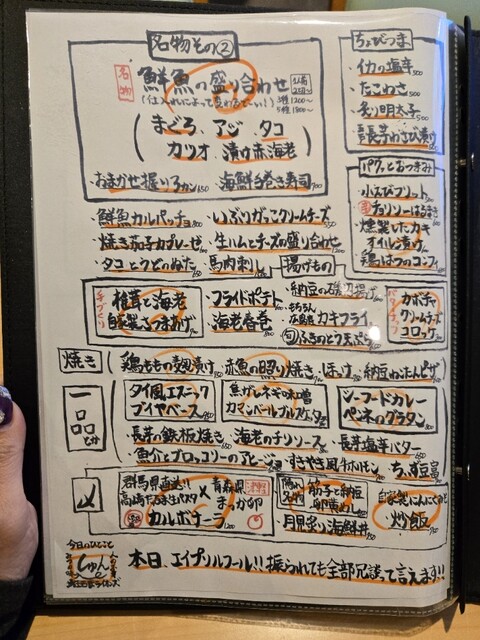 名物その②
名物
鮮魚の盛り合わせ
まぐろ、アジ、タコ
カツオ、漬け赤海老
海鮮手巻き寿司
ちょびつま
イカの塩辛 500
たこわさ
炙り明太子
長芋わさび漬け
パクッとおつまみ
小えびフリット
チョリソーはるまき
燻製したカキ
オイル漬け
鶏はつのコンフィ
鮮魚カルパッチョ
いぶりがっこクリームチーズ
焼き茄子カプレーゼ
生ハムとチーズの盛り合わせ
タコとうどのぬた
馬肉刺し
揚げもの
手づくり
椎茸と海老
自家製さつまあげ
フライドポテト
納豆の磯辺揚げ
海老春巻
もちろん
広島産 カキフライ
旬 ふきのとう天ぷら
カボチャ
クリームチーズ
コロッケ
焼き
鶏ももの麹漬け
赤魚の照り焼き
ほっけ
納豆ねぎたんピザ
一品
タイ風エスニック
ブイヤベース
焦がしネギ味噌
カマンベールブルスケッタ
シーフードカレー
ペンネのグラタン
長芋の鉄板焼き
海老のチリソース
長芋塩辛バター
魚介とブロッコリーのアヒージョ
すきやき風牛ホルモン
ちゃんぷ豆富
〆
群馬県直送!!
高崎だるま生パスタ
×
青森県
まっか卵
カルボナーラ 1200
隠れ名物
筋子と納豆
卵黄めし
月見炙り海鮮丼
自家製にんにくの
炒飯
今日のひとこと
しゅん
本日、エイプリルフール!! 振られても全部冗談って言えます!!